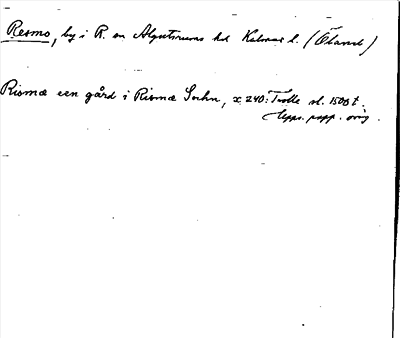 Resmo, by i R. sn Algutsrums hd Kalmar l. (Öland)
Rismæ een gård i Rismæ Sochn, x 240: Trolle sl. 1500 t.
Upps. papp. orig.